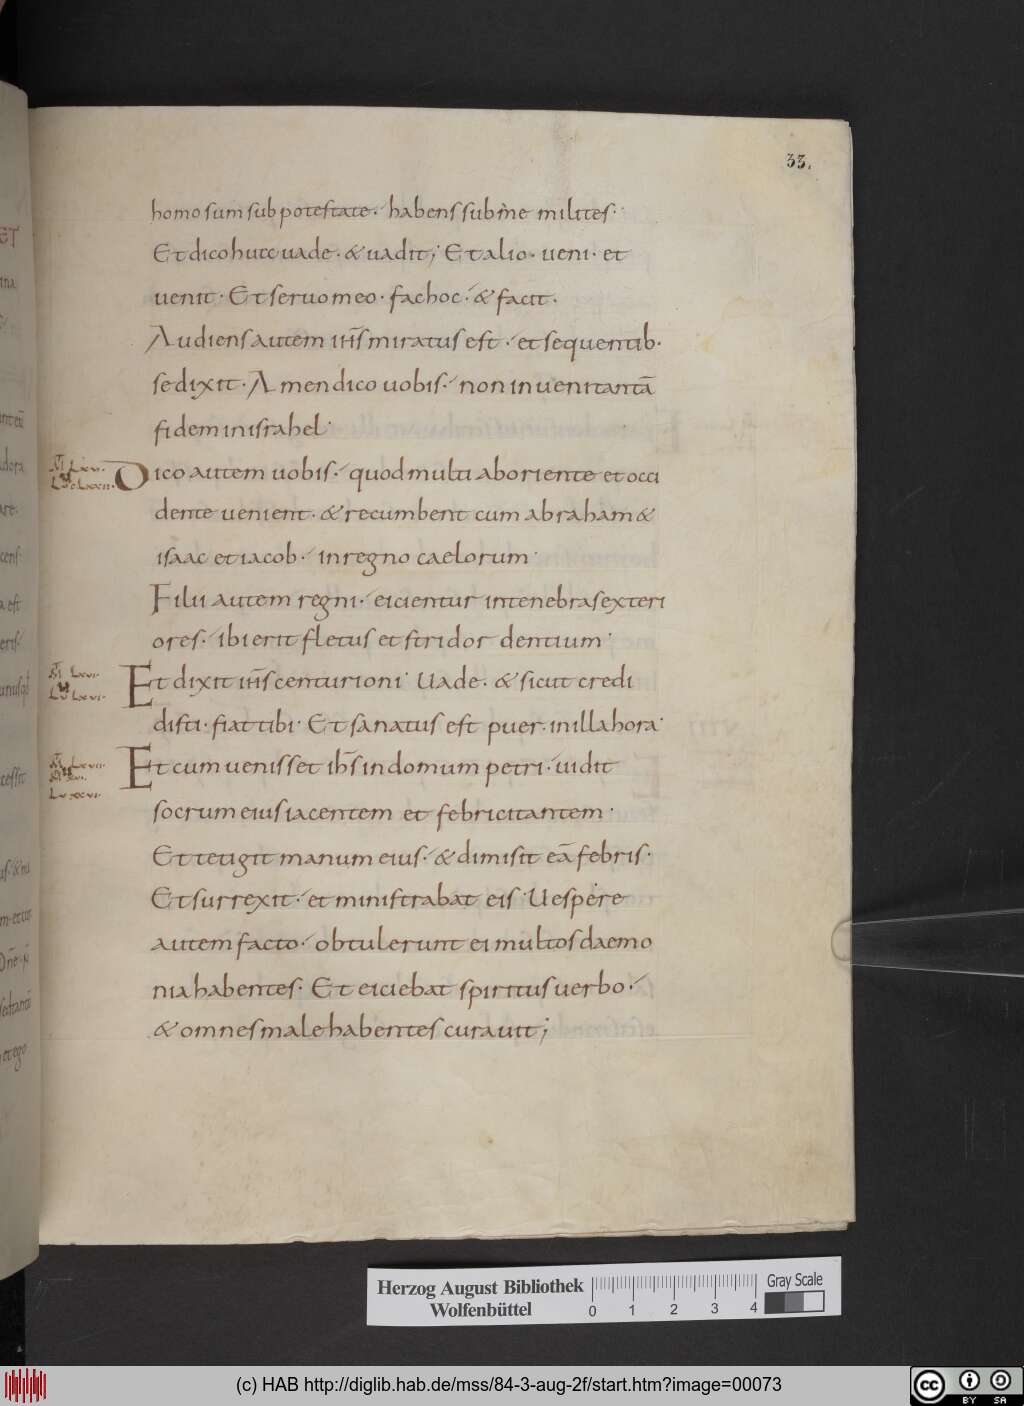 33.
homo sum sub potestate· habens sub me milites·
Et dico huic uade· & uadit; Et alio· ueni· et
uenit· Et seruo meo· fac hoc· & facit·
Audiens autem ihs̄ miratus est· et sequentib·
se dixit· Amen dico uobis· non inueni tantā
fidem in israhel·
M̄ Lxv·
Luc Lxxii·
Dico autem uobis· quod multi ab oriente et occi
dente uenient· & recumbent cum abraham &
isaac et iacob· in regno caelorum·
Filii autem regni· eicientur in tenebras exteri
ores· ibi erit fletus et stridor dentium·
M̄ Lxvi·
Lu Lxvi·
Et dixit ihs̄ centurioni· Uade· & sicut credi
disti· fiat tibi· Et sanatus est puer· in illa hora·
M̄ Lxvii·
M xvi·
Lu xxvi·
Et cum uenisset ihs̄ in domum petri· uidit
socrum eius iacentem et febricitantem·
Et tetigit manum eius· & dimisit eā febris·
Et surrexit· et ministrabat eis· Uespere
autem facto· obtulerunt ei multos daemo
nia habentes· Et eiciebat spiritus uerbo·
& omnes male habentes curauit;
Herzog August Bibliothek
Wolfenbüttel
0 1 2 3 4
Gray Scale
(c) HAB http://diglib.hab.de/mss/84-3-aug-2f/start.htm?image=00073
cc BY SA